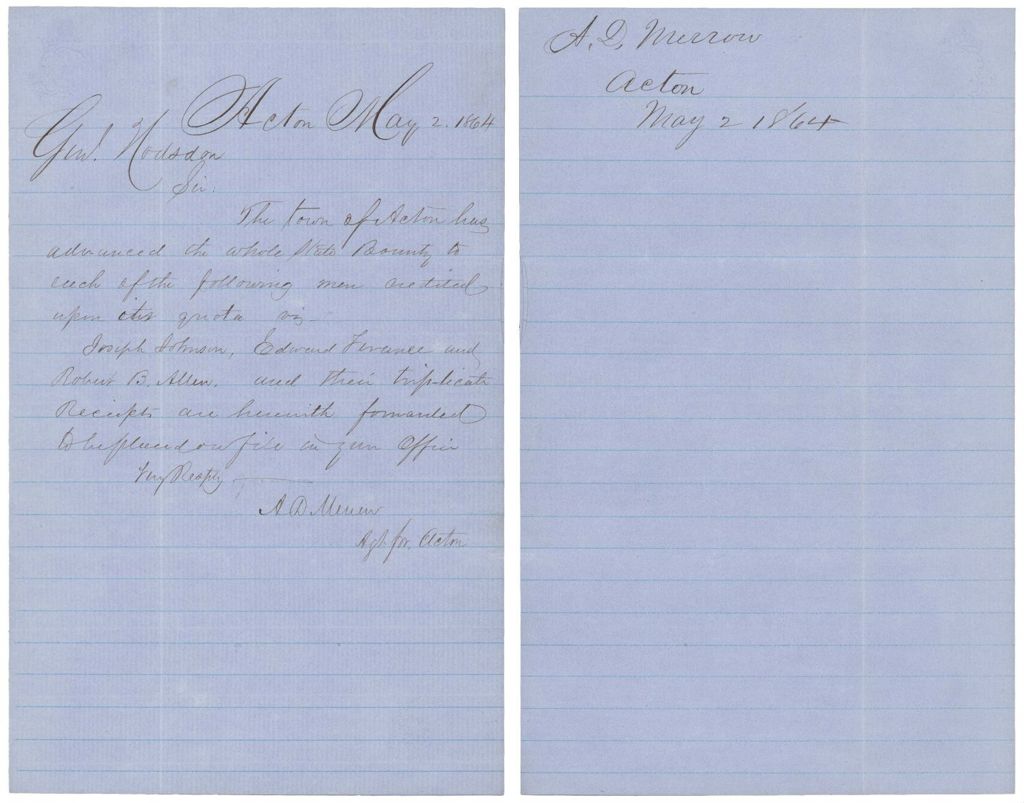 Acton May 2. 1864
Genl. Hodsdon
Sir.
The town of Acton has
advanced the whole State Bounty to
each of the following men credited
upon its quota viz-
Joseph Johnson, Edward and
Robert B. Allen. and their triplicate
Receipts are herewith forwarded
to be placed on file in your Office
Very Respty
A D Merrow
Agt for. Acton
A. D. Merrow
Acton
May 2 1864